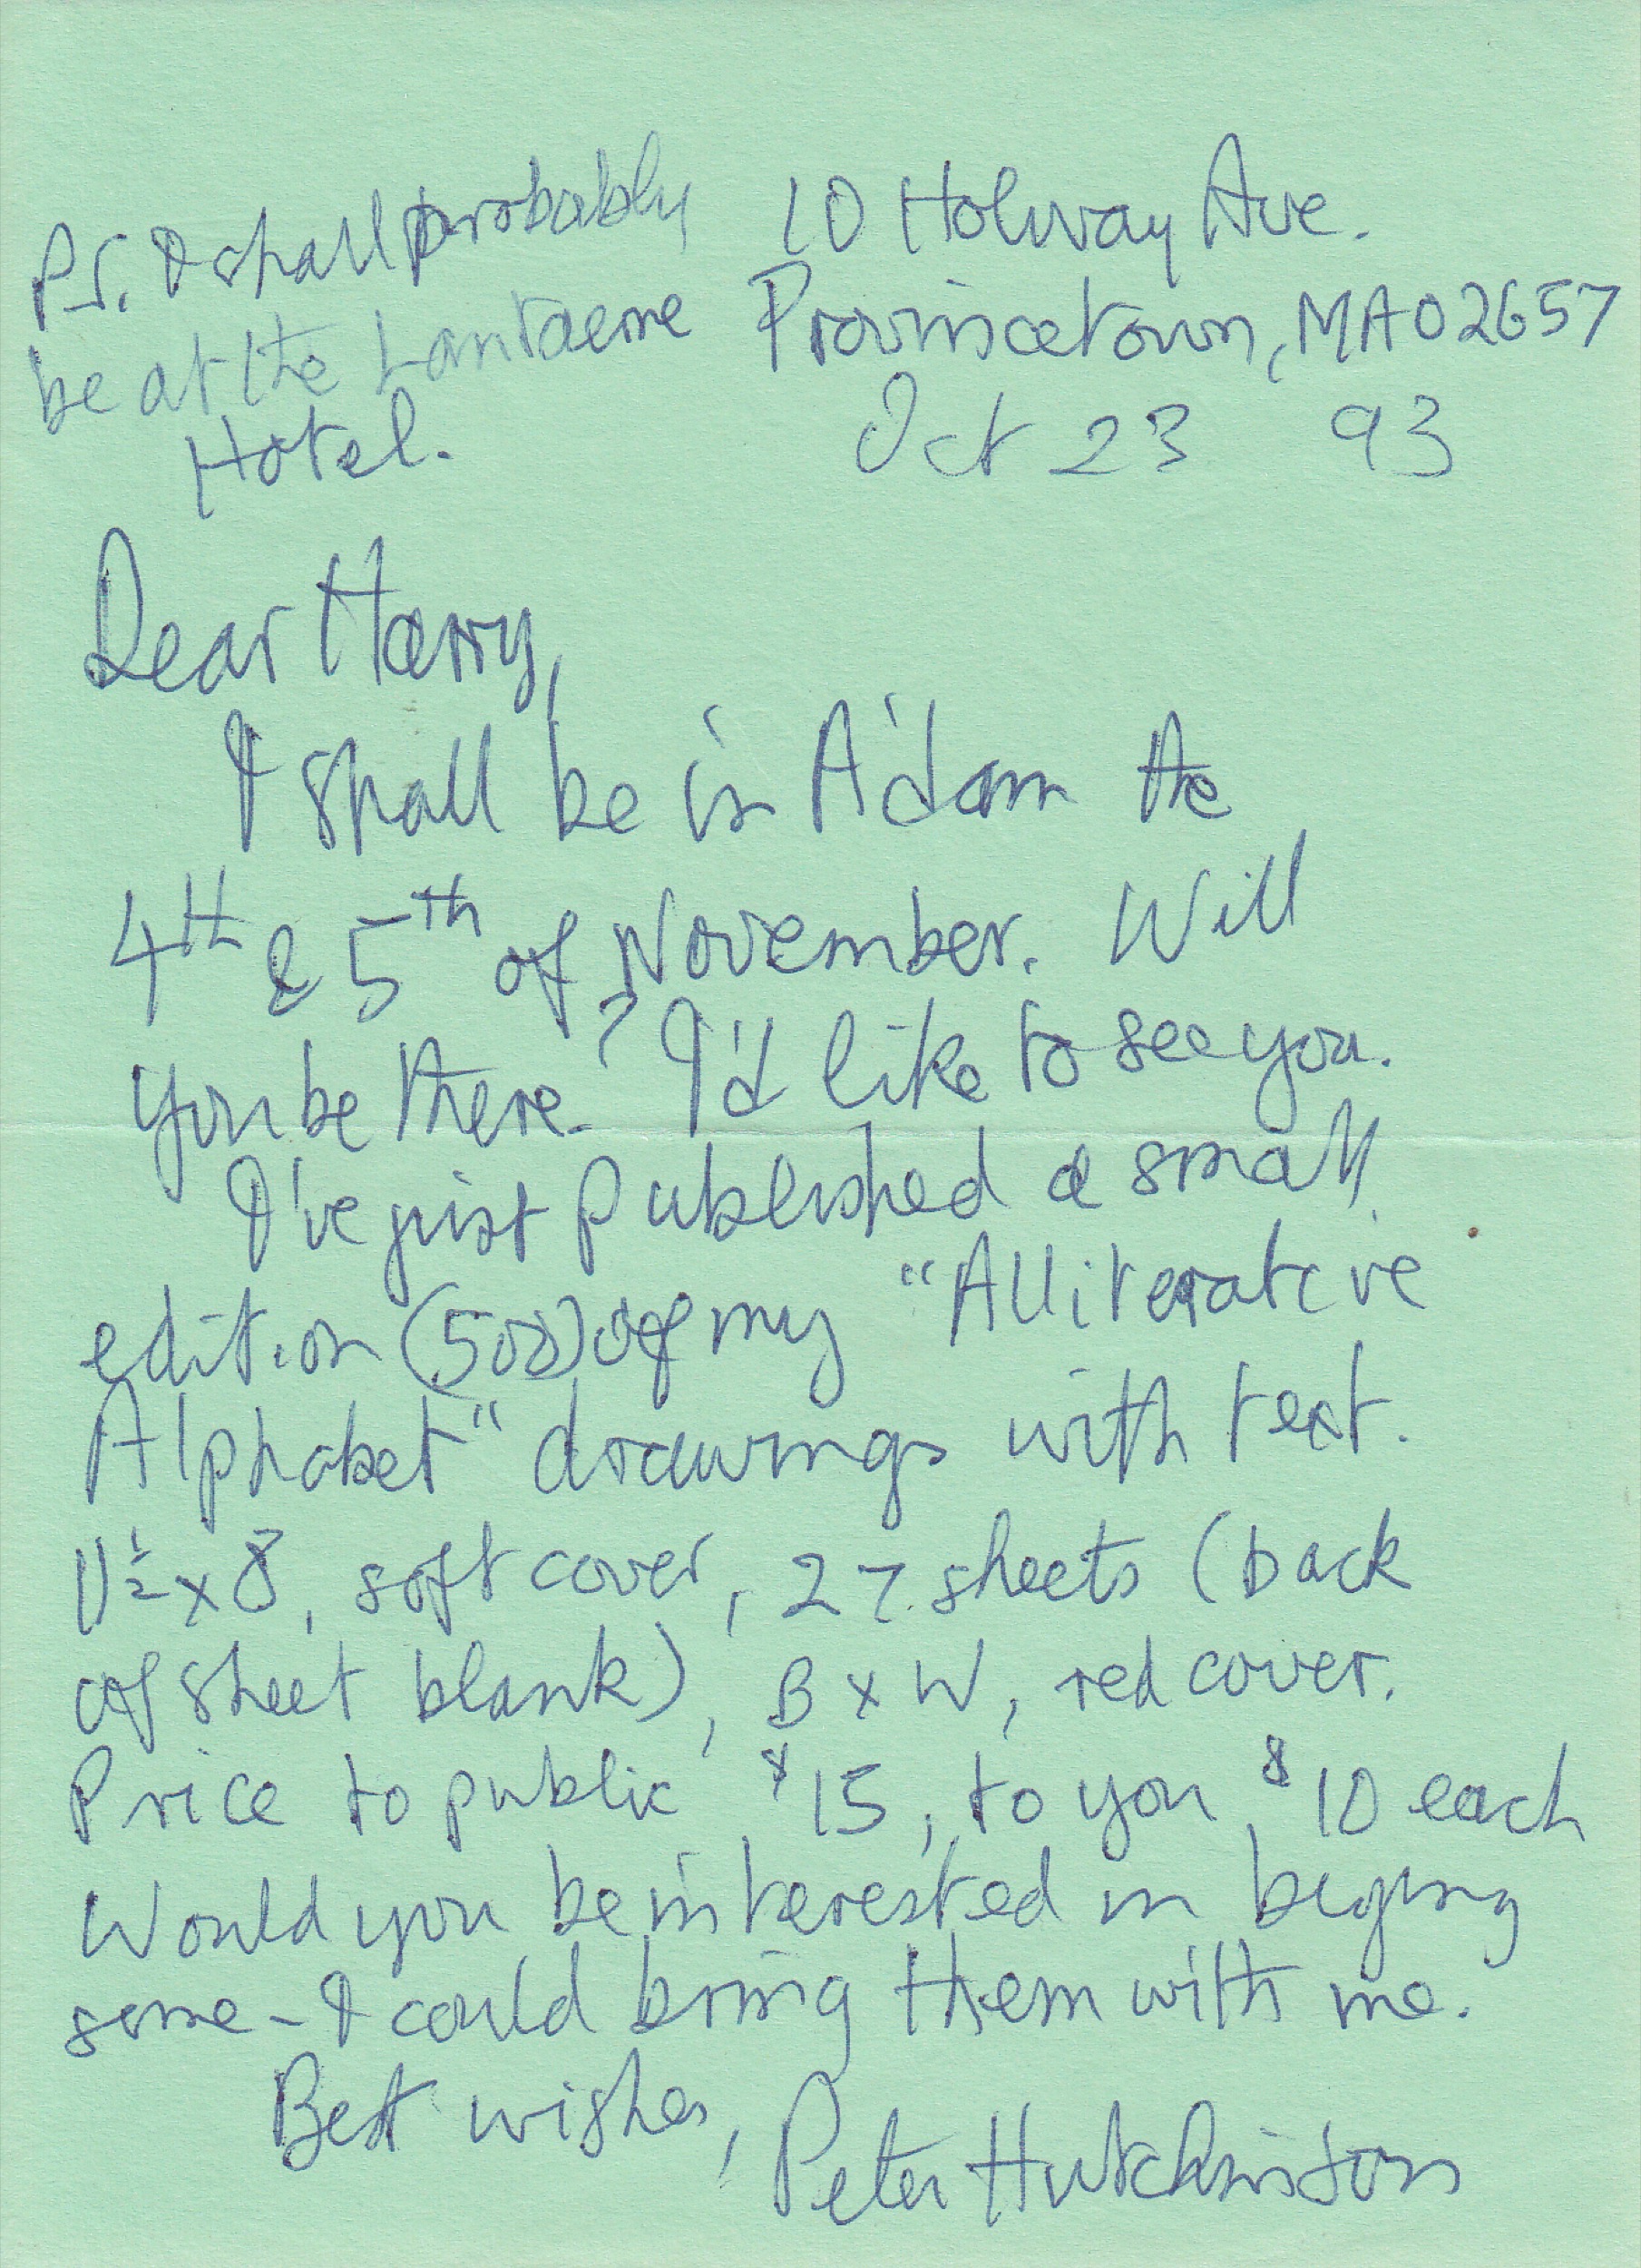 P.S. I shall probably
be at the Lantaerne
Hotel.
10 Holway Ave.
Provincetown, MA 02657
Oct 23 93
Dear Harry,
I shall be in A'dam the
4TH & 5th of November. Will
you be there? I'd like to see you.
I've just published a small
edition (500) of my "Alliterative
Alphabet" drawings with text.
11½ x 8, soft cover, 27 sheets (back
of sheet blank), B x W, red cover.
Price to public $15, to you $10 each
Would you be interested in buying
some - I could bring them with me.
Best wishes, Peter Hutchinson